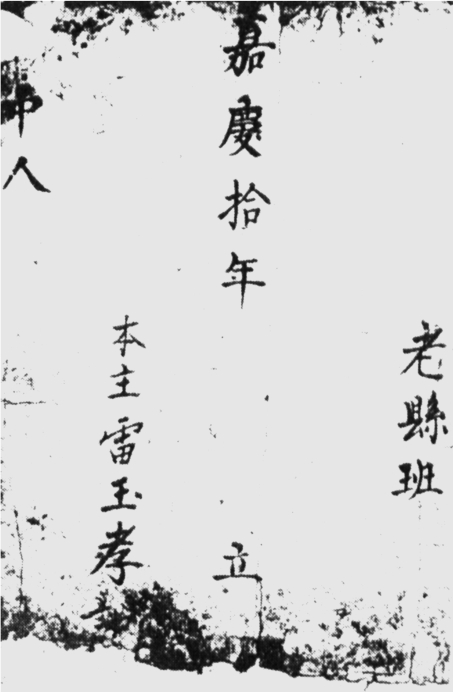 老縣班
嘉慶拾年 立
本主雷玉孝
中人